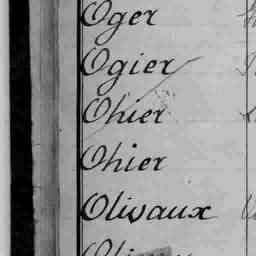 Oger
Ogier
Ohier
Ohier
Olivaux